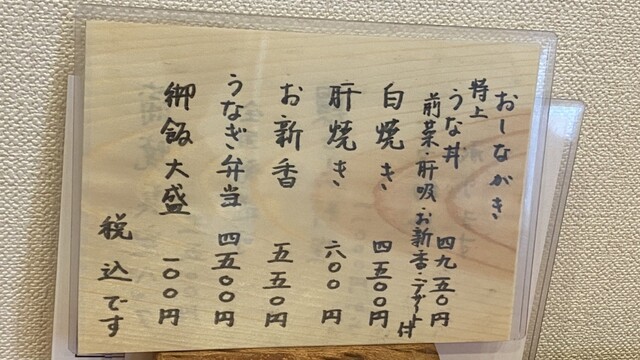 おしながき
特上うな丼 四九五〇円
前菜・肝吸・お新香・デザート付
白焼き 四五〇〇円
肝焼き 六〇〇円
お新香 五五〇円
うなぎ弁当 四五〇〇円
御飯大盛 一〇〇円
税込です